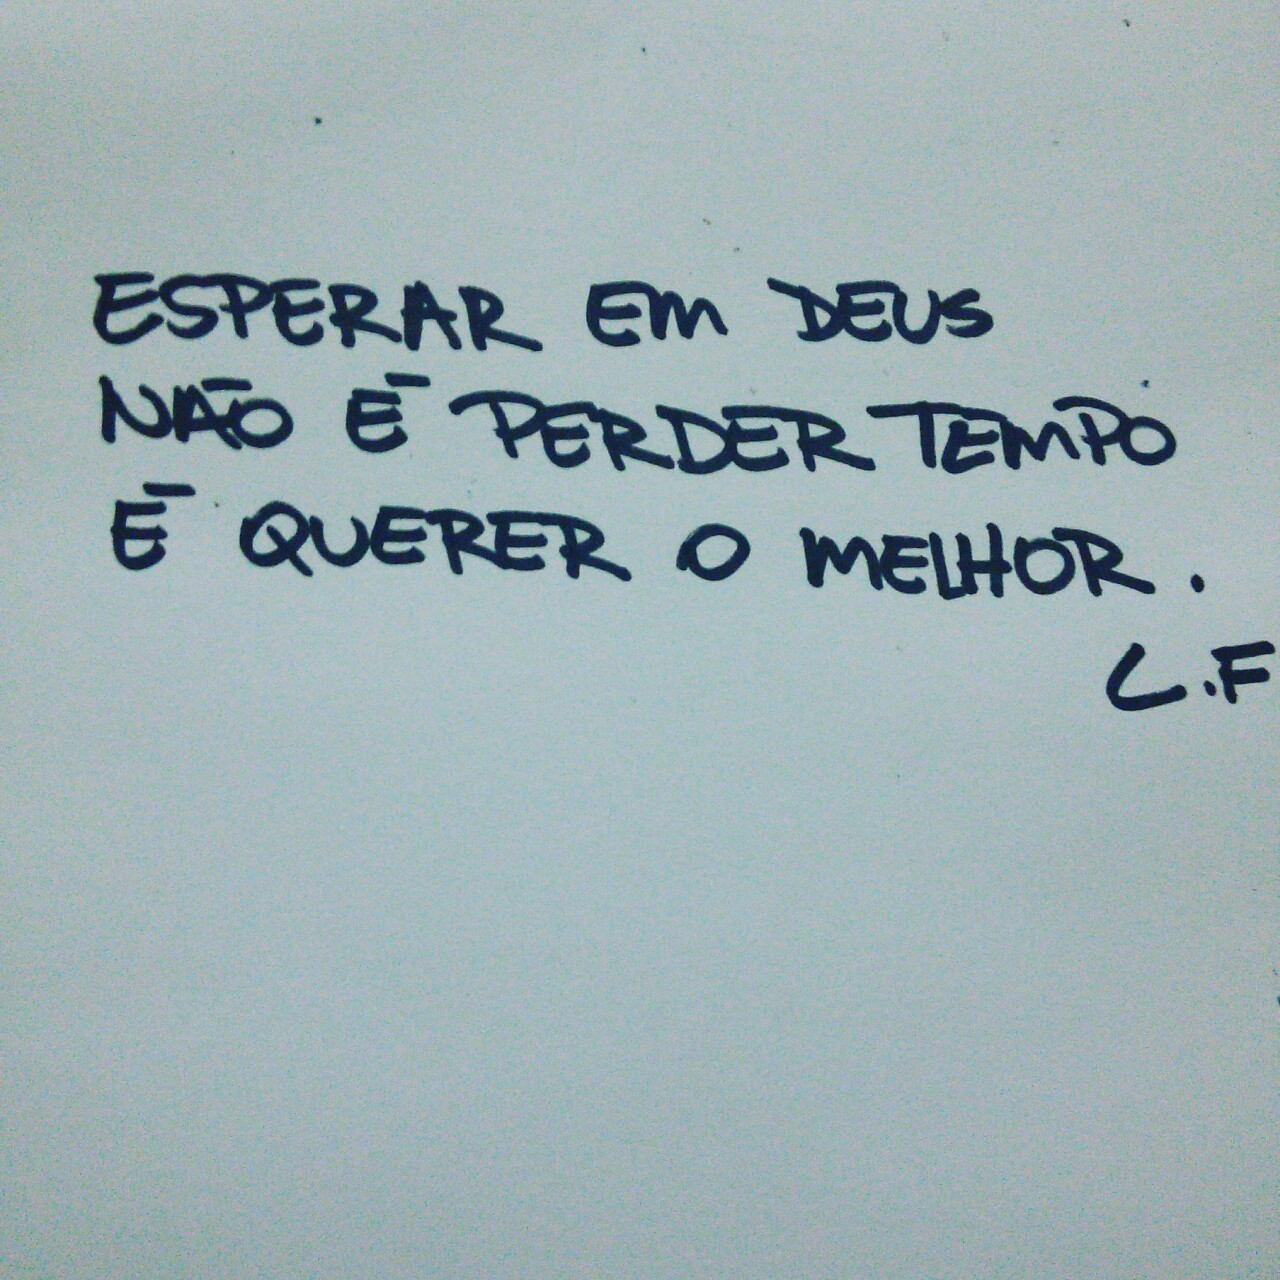 ESPERAR EM DEUS
NÃO É PERDER TEMPO
É QUERER O MELHOR.
L.F